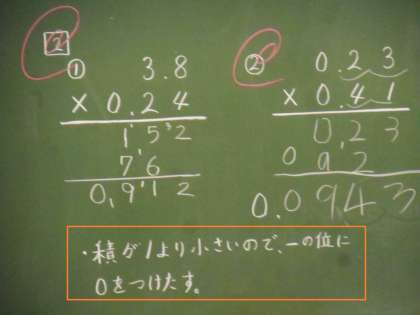 2
① 3.8
× 0.24
152
76
0.912
② 0.23
× 0.41
0.23
092
0.0943
・積が1より小さいので、一の位に
0をつけたす。